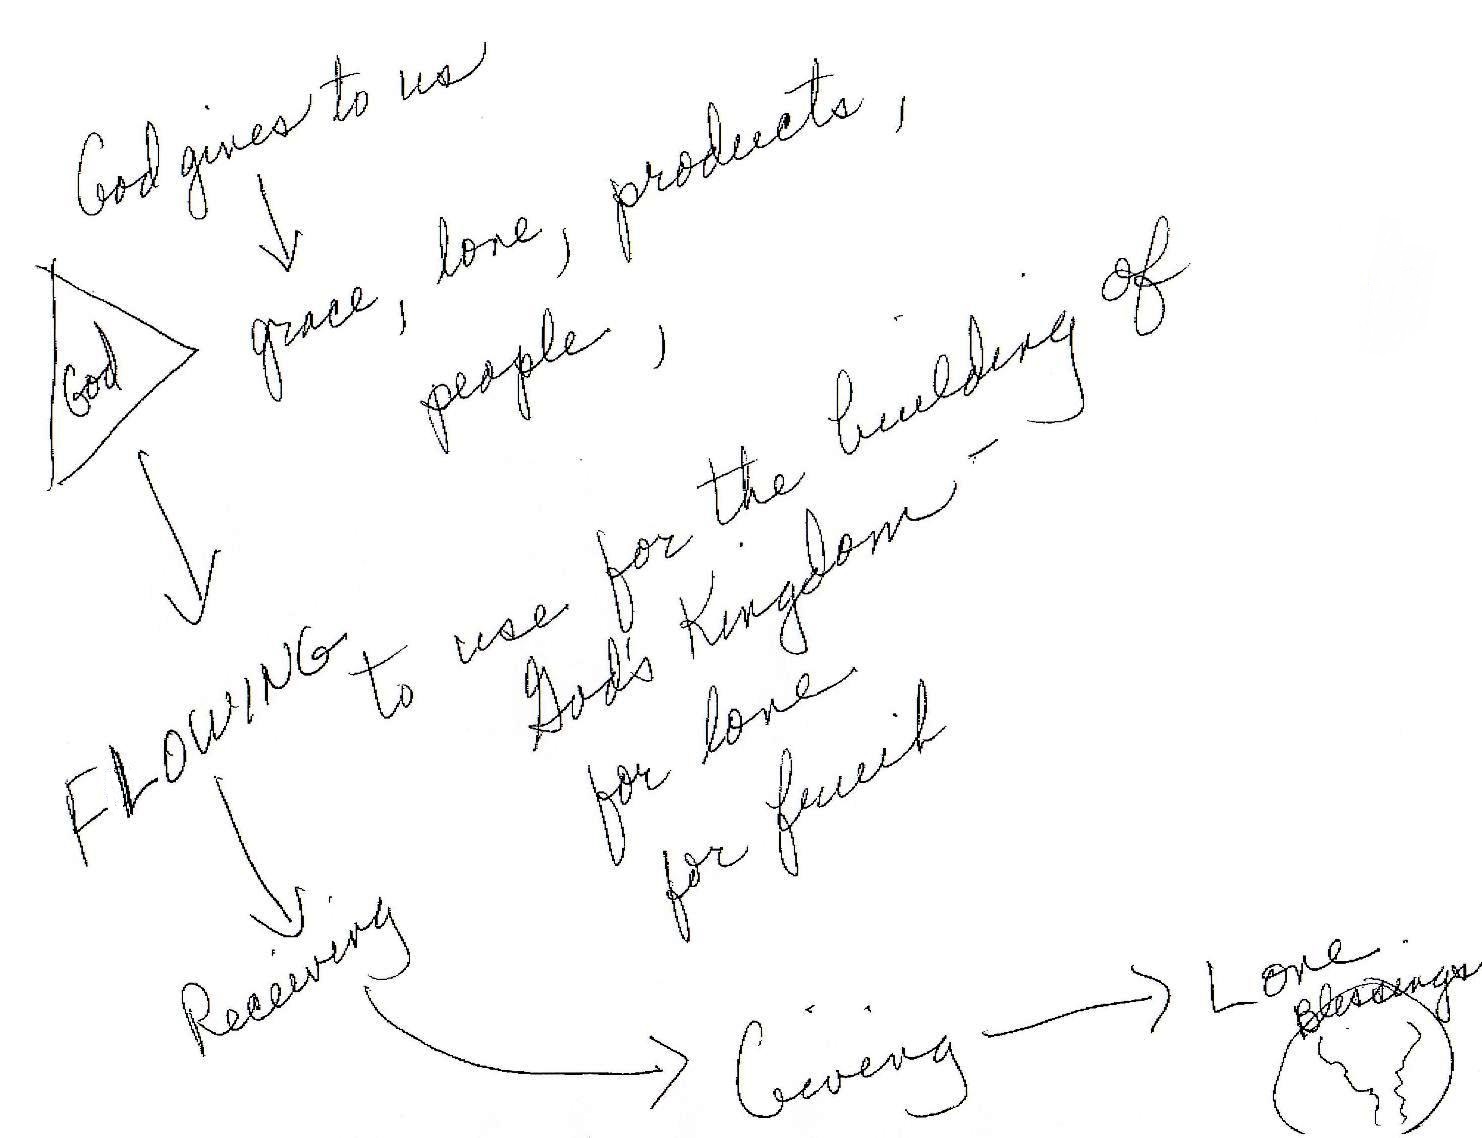 God gives to us
grace, love, products,
people,
God
FLOWING
to use for the building of
God's Kingdom -
for love
for fruit
Receiving
Giving
Love
Blessings